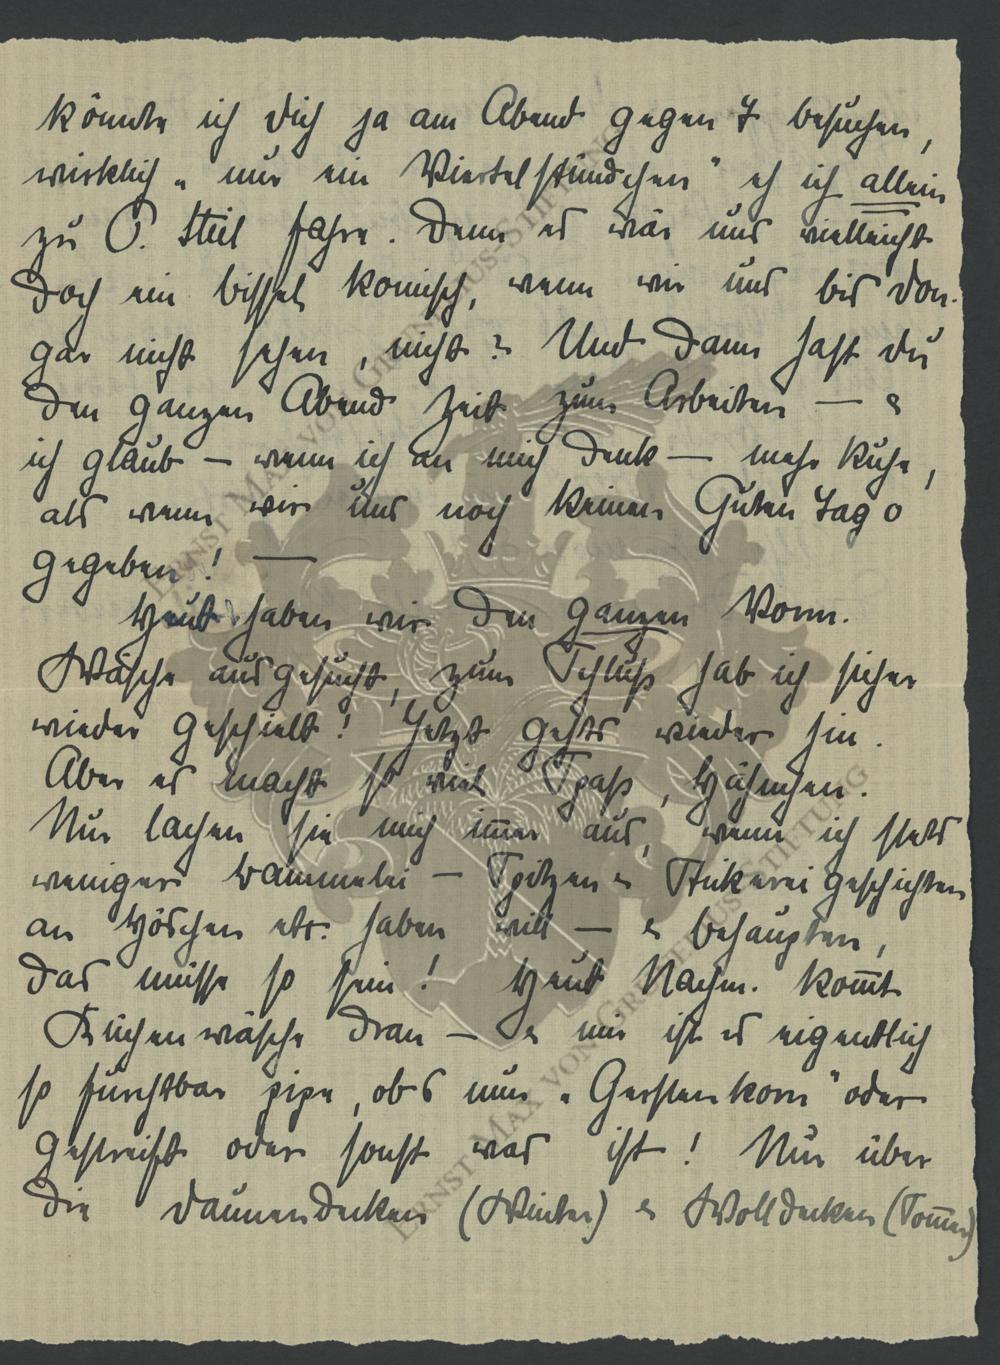 könnte ich Dich ja am Abend gegen 7 besuchen,
wirklich „nur ein Viertelstündchen" eh ich allein
zu O. Stiel fahre. Denn es wär uns vielleicht
doch ein bissel komisch, wenn wir uns bis Don.
gar nicht sehen, nicht? Und dann hast du
den ganzen Abend Zeit zum Arbeiten — &
ich glaub — wenn ich an mich denk — mehr Ruhe,
als wenn wir uns noch keinen Guten Tag
gegeben! —
Heut haben wir den ganzen Vorm.
Wäsche ausgesucht, zum Schluß hab ich sicher
wieder geschielt! Jetzt gehts wieder hin.
Aber es macht so viel Spaß, Hähnchen.
Nur lachen sie mich im̅er aus, wenn ich stets
weniger Bammelei — Spitzen & Stickereigeschichten
an Höschen etc. haben will — & behaupten,
das müsse so sein! Heut Nachm. kom̅t
Küchenwäsche dran — & mir ist es eigentlich
so furchtbar pipe, obs nun „Gerstenkorn" oder
gestreift oder sonst was ist! Nur über
die Daunendecken (Winter) & Wolldecken (Som̅er)
ERNST MAX VON GRUNELIUS-STIFTUNG
ERNST MAX VON GRUNELIUS-STIFTUNG